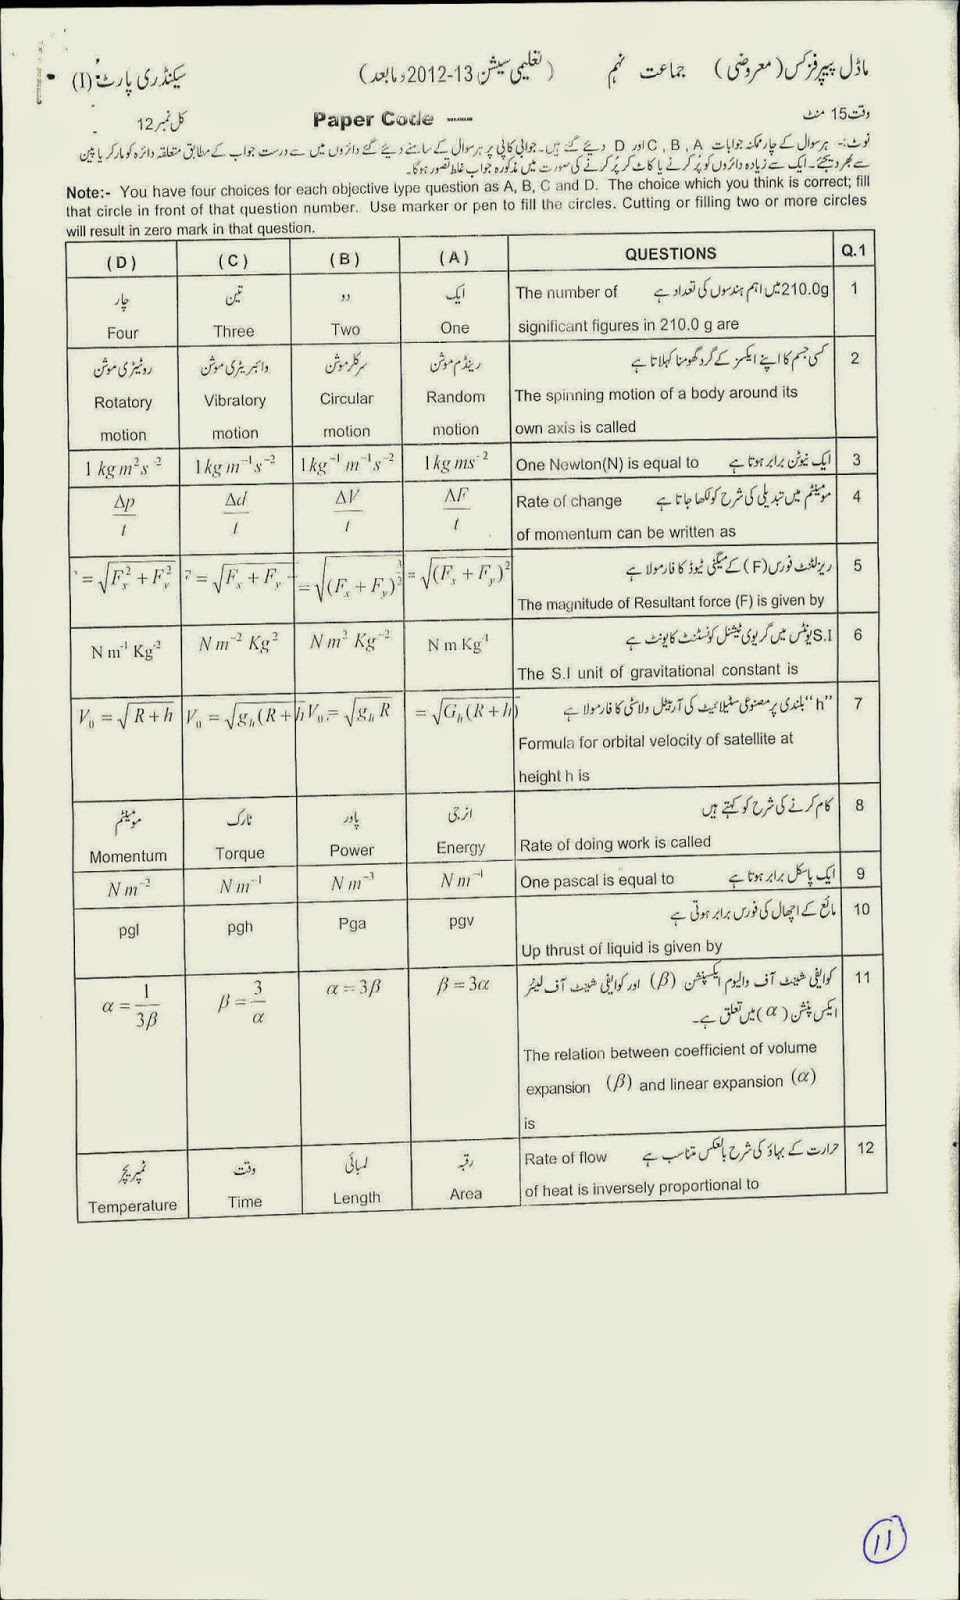 ماڈل پیپر فزکس (معروضی) جماعت نہم (تعلیمی سیشن 13-2012 وما بعد) سیکنڈری پارٹ (I)
وقت 15 منٹ Paper Code --- کل نمبر 12
نوٹ:- ہر سوال کے چار ممکنہ جوابات C , B , A اور D دیئے گئے ہیں۔ جوابی کاپی پر ہر سوال کے سامنے دیئے گئے دائروں میں سے درست جواب کے مطابق متعلقہ دائرہ کو مارکر یا پین
سے بھر دیجئے۔ ایک سے زیادہ دائروں کو پُر کرنے یا کاٹ کر پُر کرنے کی صورت میں مذکورہ جواب غلط تصور ہوگا۔
Note:- You have four choices for each objective type question as A, B, C and D. The choice which you think is correct; fill
that circle in front of that question number. Use marker or pen to fill the circles. Cutting or filling two or more circles
will result in zero mark in that question.
(D) (C) (B) (A) QUESTIONS Q.1
چار تین دو ایک The number of 210.0g میں اہم ہندسوں کی تعداد ہے 1
Four Three Two One significant figures in 210.0 g are
روٹیٹری موشن وائبریٹری موشن سرکلر موشن رینڈم موشن کسی جسم کا اپنے ایکسز کے گرد گھومنا کہلاتا ہے 2
Rotatory Vibratory Circular Random The spinning motion of a body around its
motion motion motion motion own axis is called
1 kg m²s⁻² 1kg m⁻¹s⁻² 1kg⁻¹m⁻¹s⁻² 1kg ms⁻² One Newton(N) is equal to ایک نیوٹن برابر ہوتا ہے 3
Δp/t Δd/t ΔV/t ΔF/t Rate of change مومینٹم میں تبدیلی کی شرح کو لکھا جاتا ہے 4
of momentum can be written as
=√(Fx²+Fy²) =√(Fx+Fy) =√(Fx+Fy)² =√(Fx+Fy)² ریزلٹنٹ فورس (F) کے میگنی ٹیوڈ کا فارمولا ہے 5
The magnitude of Resultant force (F) is given by
N m⁻¹ Kg⁻² N m⁻² Kg² N m² Kg⁻² N m Kg⁻¹ S.I یونٹس میں گریوی ٹیشنل کونسٹنٹ کا یونٹ ہے 6
The S.I unit of gravitational constant is
V₀=√(R+h) V₀=√(gₕ(R+h V₀=√(gₕR) =√(Gₕ(R+h)) "h" بلندی پر مصنوعی سٹیلائیٹ کی آربیٹل ولاسٹی کا فارمولا ہے 7
Formula for orbital velocity of satellite at
height h is
مومینٹم ٹارک پاور انرجی کام کرنے کی شرح کو کہتے ہیں 8
Momentum Torque Power Energy Rate of doing work is called
N m⁻² N m⁻¹ N m⁻³ N m⁻¹ One pascal is equal to ایک پاسکل برابر ہوتا ہے 9
pgl pgh Pga pgv مائع کے اچھال کی فورس برابر ہوتی ہے 10
Up thrust of liquid is given by
α=1/3β β=3/α α=3β β=3α کوایفی شینٹ آف والیوم ایکسپنشن (β) اور کوایفی شینٹ آف لینئر 11
ایکس پنشن (α) میں تعلق ہے۔
The relation between coefficient of volume
expansion (β) and linear expansion (α)
is
ٹمپریچر وقت لمبائی رقبہ Rate of flow حرارت کے بہاؤ کی شرح بالعکس متناسب ہے 12
Temperature Time Length Area of heat is inversely proportional to
11